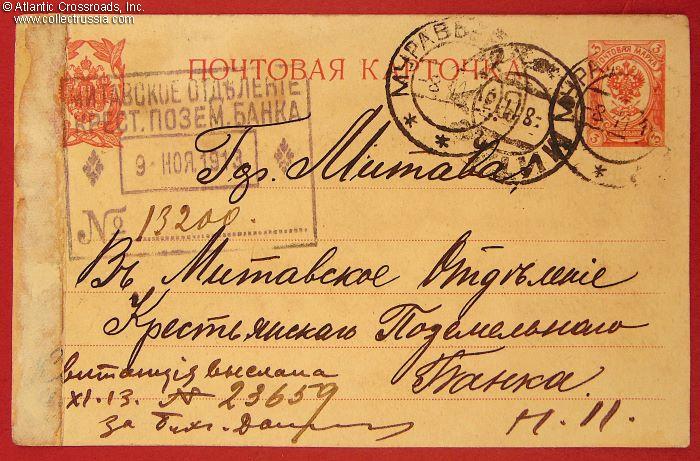 © Atlantic Crossroads, Inc.
www.collectrussia.com
ПОЧТОВАЯ КАРТОЧКА.
ПОЧТОВАЯ МАРКА
3 3
МИТАВСКОЕ ОТДѢЛЕНІЕ
КРЕСТ. ПОЗЕМ. БАНКА
9 - НОЯ. 1913
№ 13200.
МУРАВЬЕВО
Гор. Митава,
Въ Митавское Отдѣленіе
Крестьянскаго Поземельнаго
Банка.
Н. П.
витанція выслана
XI. 13. № 23659
за